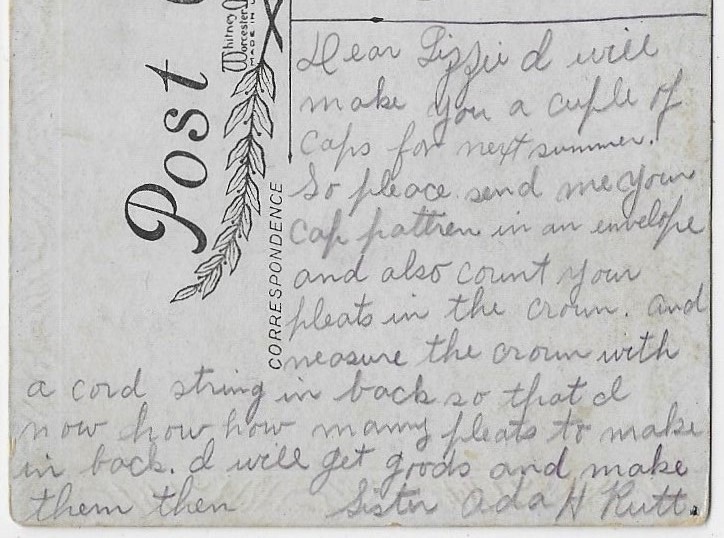 Post
Whitney
Worcester
MADE IN U
CORRESPONDENCE
Dear Lizzie I will
make you a cuple of
caps for next summer.
So pleace send me your
cap pattren in an envelope
and also count your
pleats in the crown. and
measure the crown with
a cord string in back so that I
now how how manny pleats to make
in back. I will get goods and make
them then Sister Ada H Rutt.